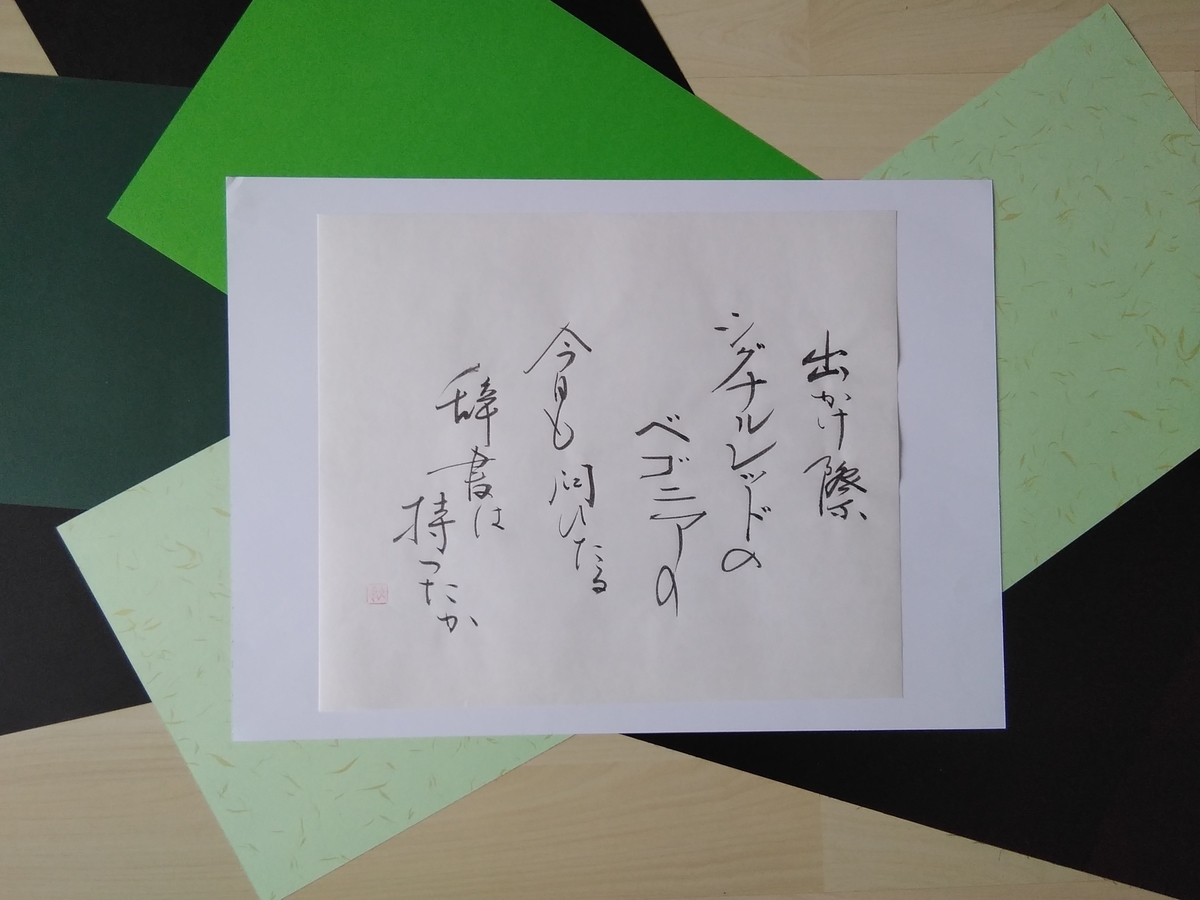 出かけ際
シグナルレッドの
ベゴニアの
今日も問ひたる
辞書は
持ったか